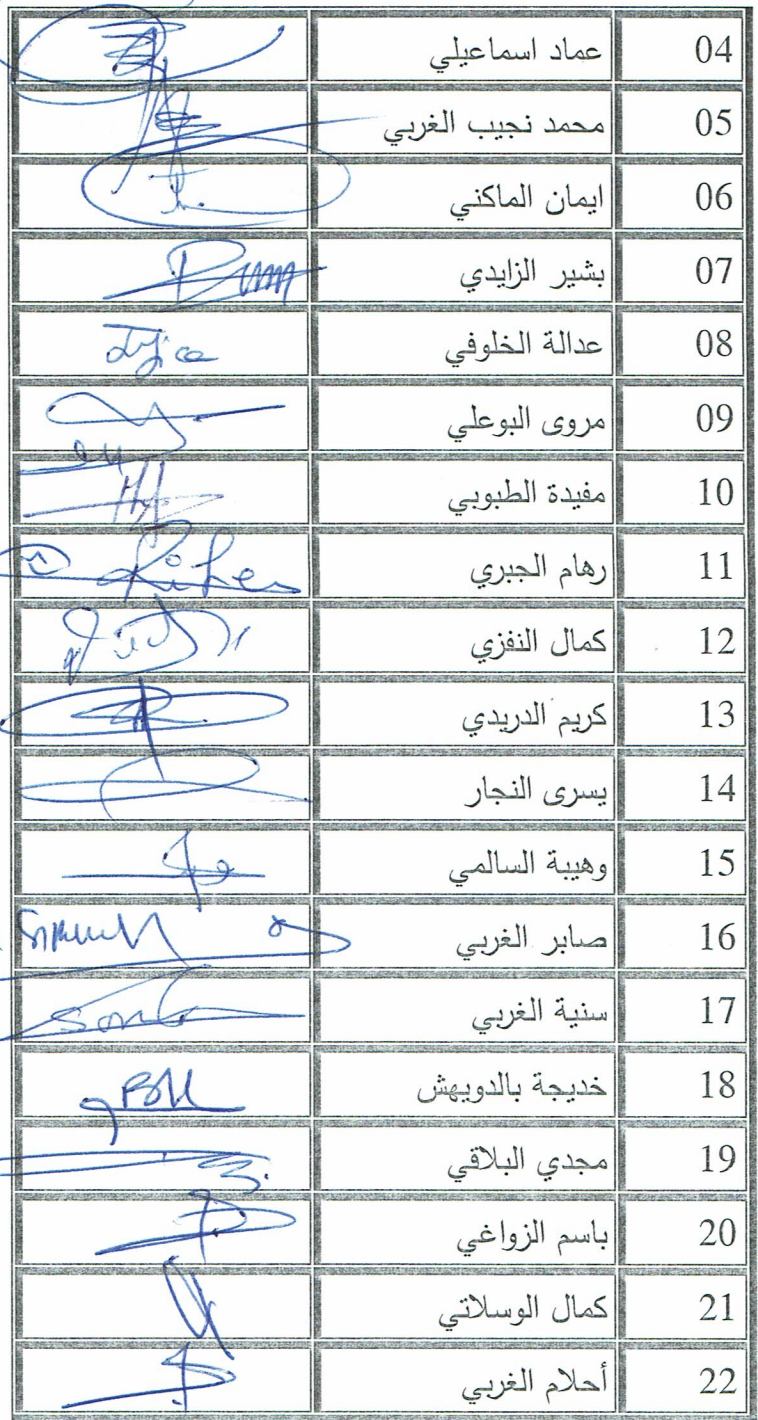 04 عماد اسماعيلي
05 محمد نجيب الغربي
06 ايمان الماكني
07 بشير الزايدي
08 عدالة الخلوفي
09 مروى البوعلي
10 مفيدة الطبوبي
11 رهام الجبري
12 كمال النفزي
13 كريم الدريدي
14 يسرى النجار
15 وهيبة السالمي
16 صابر الغربي
17 سنية الغربي
18 خديجة بالدويهش
19 مجدي البلاقي
20 باسم الزواغي
21 كمال الوسلاتي
22 أحلام الغربي